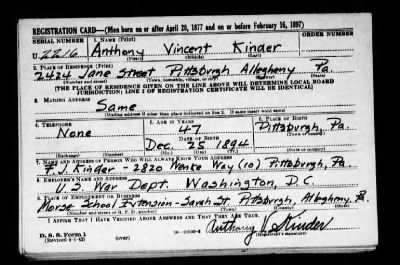 REGISTRATION CARD—(Men born on or after April 28, 1877 and on or before February 16, 1897)
SERIAL NUMBER 1. NAME (Print) ORDER NUMBER
U 2216 Anthony Vincent Kinder
(First) (Middle) (Last)
2. PLACE OF RESIDENCE (Print)
2424 Jane Street Pittsburgh Allegheny Pa.
(Number and street) (Town, township, village, or city) (County) (State)
[THE PLACE OF RESIDENCE GIVEN ON THE LINE ABOVE WILL DETERMINE LOCAL BOARD
JURISDICTION; LINE 2 OF REGISTRATION CERTIFICATE WILL BE IDENTICAL]
3. MAILING ADDRESS
Same
[Mailing address if other than place indicated on line 2. If same insert word same]
4. TELEPHONE 5. AGE IN YEARS 6. PLACE OF BIRTH
None 47 Pittsburgh, Pa.
DATE OF BIRTH (Town or county)
Dec. 25 1894
(Exchange) (Number) (Mo.) (Day) (Yr.) (State or country)
7. NAME AND ADDRESS OF PERSON WHO WILL ALWAYS KNOW YOUR ADDRESS
F. J. Kinder - 2820 Way (10) Pittsburgh, Pa.
8. EMPLOYER'S NAME AND ADDRESS
U.S. War Dept. Washington, D.C.
9. PLACE OF EMPLOYMENT OR BUSINESS
Morse School Extension - Sarah St. Pittsburgh, Allegheny, Pa.
(Number and street or R. F. D. number) (Town) (County) (State)
I AFFIRM THAT I HAVE VERIFIED ABOVE ANSWERS AND THAT THEY ARE TRUE.
D. S. S. Form 1
(Revised 4-1-42) (over) Anthony V. Kinder